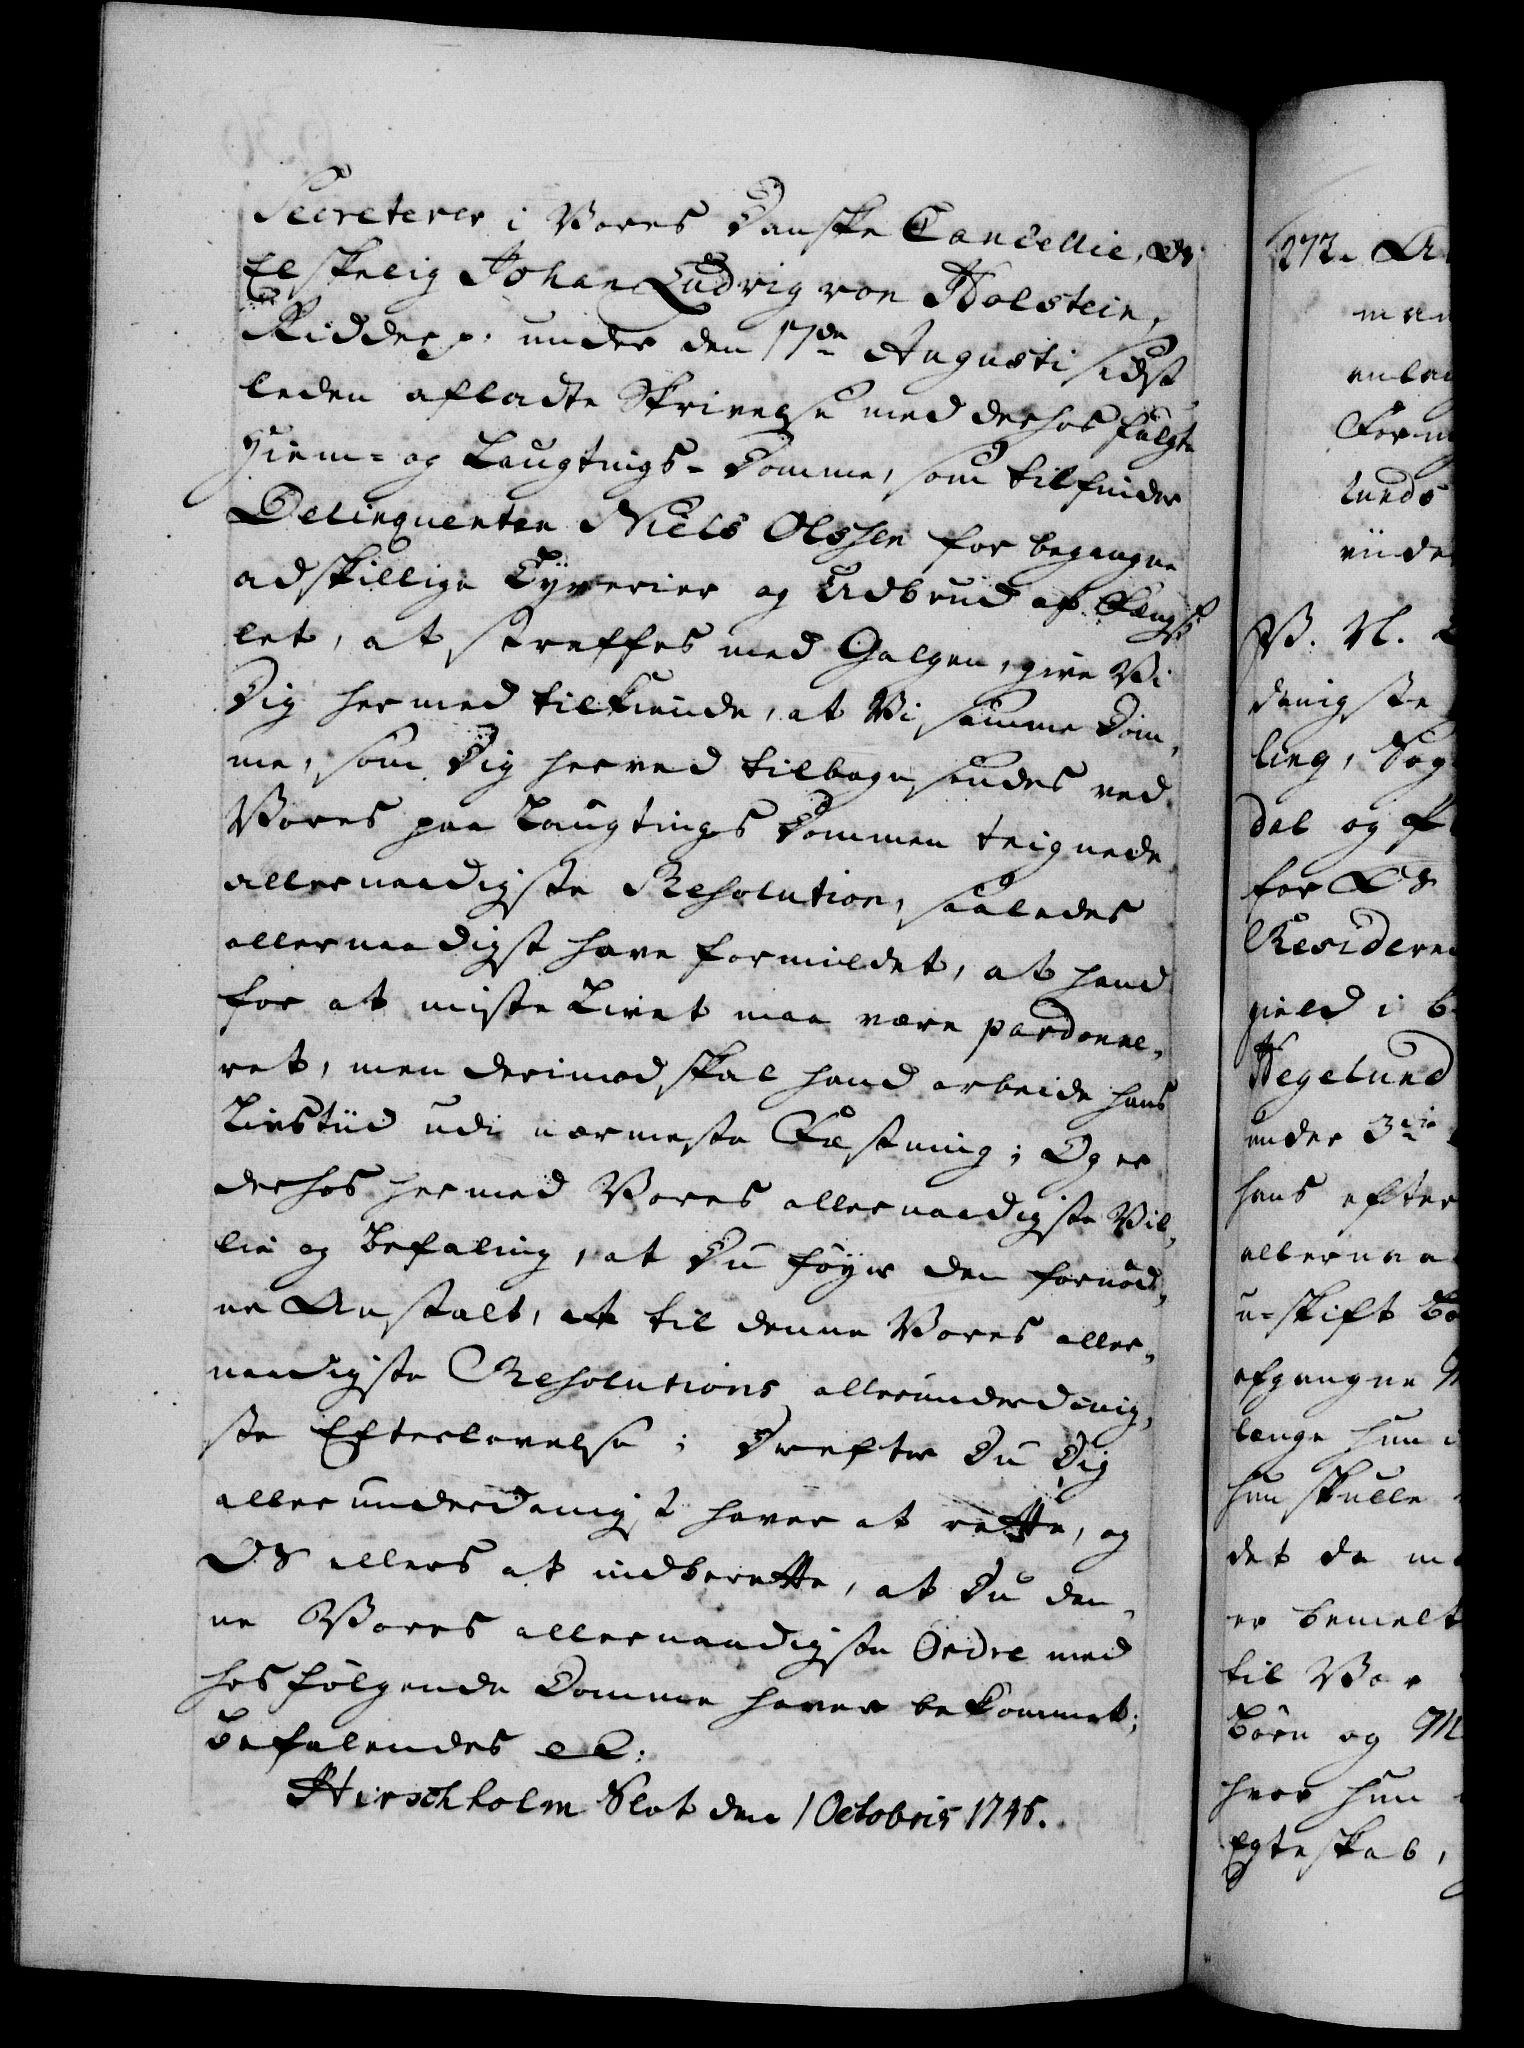 Secreterer i Vores Danske Cancellie, Os
Elskelig Johan Ludvig von Holstein,
Ridder p. under den 17de Augusti sidst
leden afladte Skrivelse med derhos fulgte
Hiem- og Laugtings-Domme, som tilfinder
Delinquenten Niels Olssen for begangne
adskillige Tyverier og Udbrud af Fængs-
let, at straffes med Galgen, give Vi
Dig hermed tilkiende, at Vi samme Dom,
me, som Dig herved tilbage sendes ved
Vores paa Laugtings Dommen teignede
allernaadigste Resolution, saaledes
allernaadigst have formildet, at hand
for at miste Livet maa være pardonne,
ret, men derimod skal hand arbeide hans
Livstiid udi nærmeste Fæstning; Og er
derhos hermed Vores allernaadigste Vil,
lie og Befaling, at Du føyer den fornød,
ne Anstalt, at til denne Vores aller,
naadigste Resolutions allerunderdanig,
ste Efterlevelse; Derefter Du Dig
allerunderdanigst haver at rette, og
Os ellers at indberette, at Du den,
ne Vores allernaadigste Ordre med
hosfølgende Domme haver bekommet;
Befalendes etc:
Hirschholm Slot den 1 Octobris 1746.
272. A
man
anlan
Form
lunds
vide
V. N.
danigste
ling, Sog
dal og
for Os
Residere
gield i b
Hegelund
under 3die
hans efter
allernaa
u-skift Bo
afgangne M
længe hun
hun skulle
det da m
er bemelt
til Vor
Børn og M
hvor hun
Egteskab,